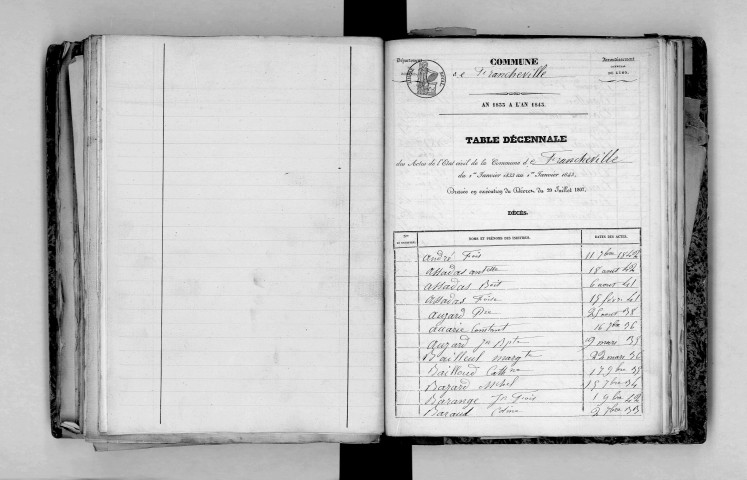 Département
COMMUNE
de Francheville
Arrondissement
DE LYON.
AN 1833 A L'AN 1843.
TABLE DÉCENNALE
des Actes de l'Etat civil de la Commune de Francheville
du 1er Janvier 1833 au 1er Janvier 1843,
Dressée en exécution du Décret du 20 Juillet 1807.
DÉCÈS.
NOMS ET PRÉNOMS DES INDIVIDUS. DATES DES ACTES.
André Fois 11 7bre 1842
Assadas 18 aout 42
Assadas Boit 6 aout 41
Assadas 15 févr 41
Auzard Pre 25 aout 38
Constant 16 36
Auzard Jn Bpte 9 mars 35
Bailleul Margte 22 mars 36
Bailloud Cathne 17 9bre 38
Bazard Michel 15 7bre 34
Barange Jn Fois 1 9bre 42
Baraud 2 7bre 33